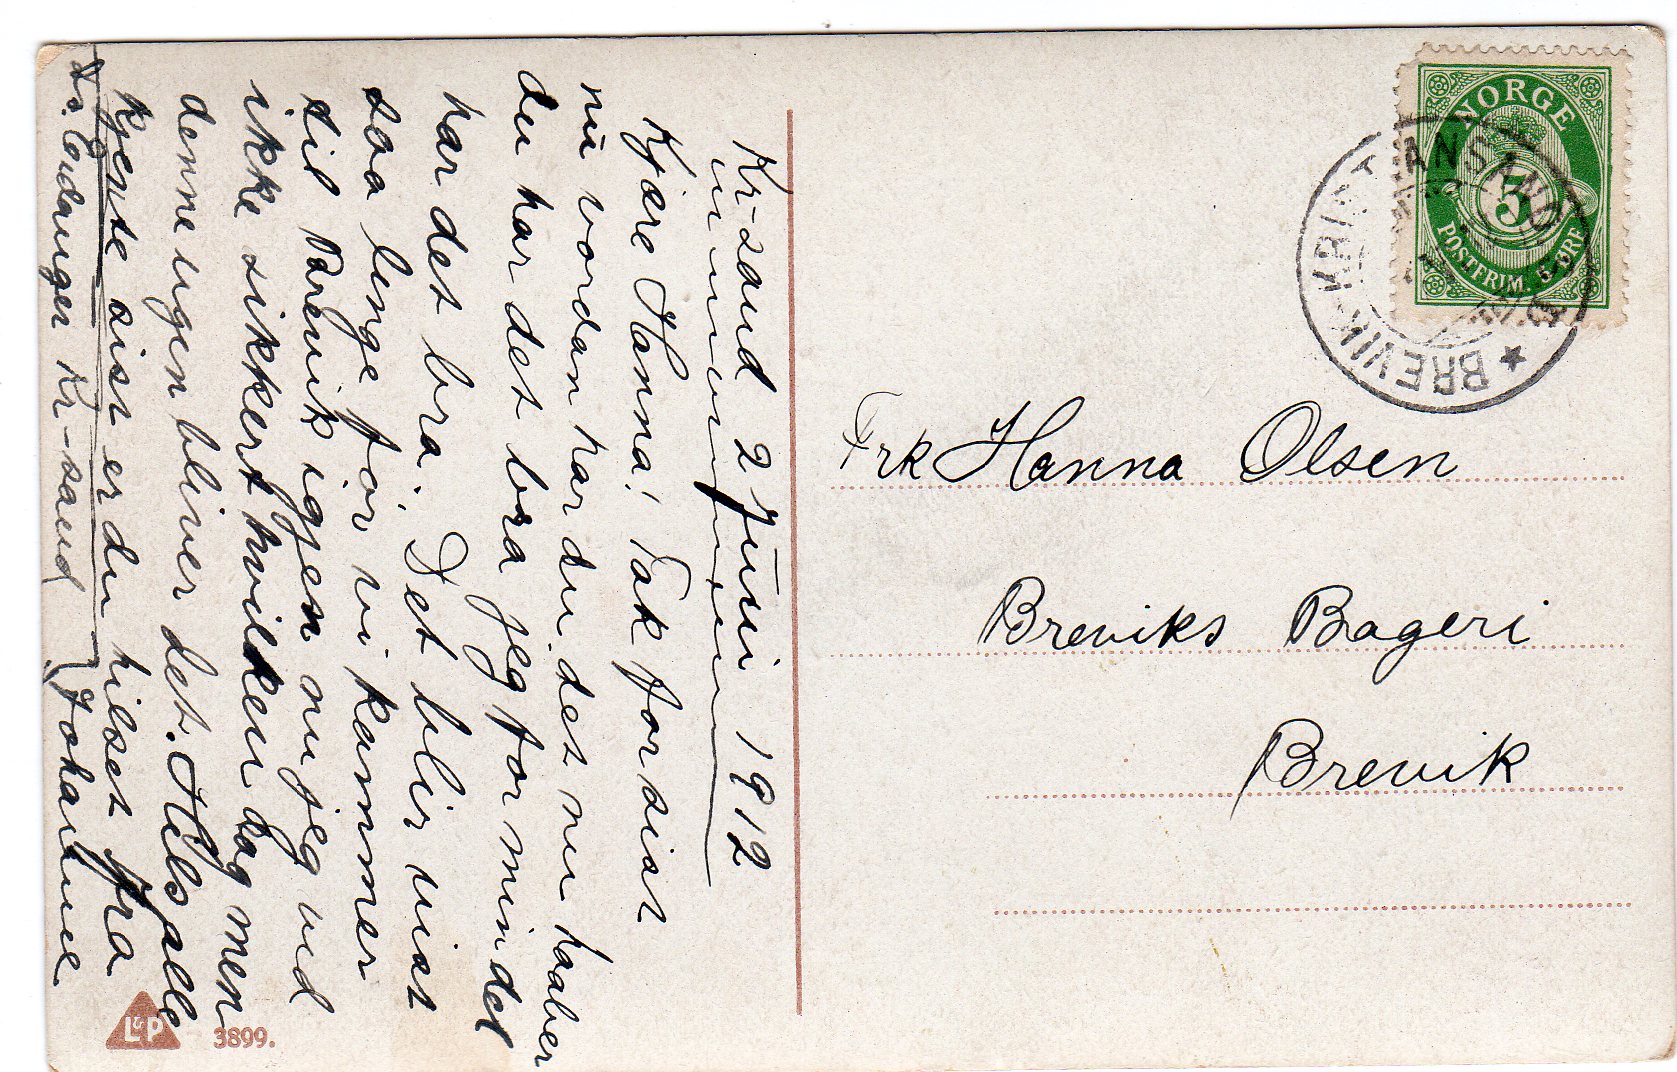 Kr-sand 2 Juni 1912
Kjære Hanna! Tak for sist
nu vordan har du det nu haaber
du har det bra jeg for min del
har det bra. Det blir vist
saa lenge før vi kommer
til Brevik igjen nu jeg ved
ikke sikkert hvilken dag men
denne ugen bliver det. Hils alle
kjente sist er du hilset fra
Johanne
Kr-sand
NORGE
5
POSTFRIM. 5 ØRE
BREVIK-KRISTIANSAND
Frk Hanna Olsen
Breviks Bageri
Brevik
L&P
3899.